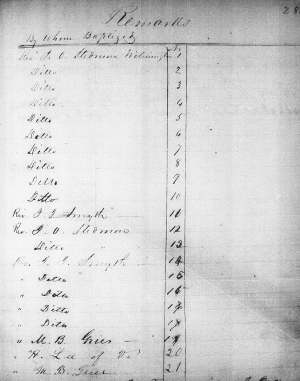 Remarks
By Whom Baptized
Rev. J. O. Stedman Wilmington 1
Ditto 2
Ditto 3
Ditto 4
Ditto 5
Ditto 6
Ditto 7
Ditto 8
Ditto 9
Ditto 10
Rev. Smyth 11
Rev. J. O. Stedman 12
Ditto " 13
Smyth 14
" Ditto " 15
" Ditto 16
" Ditto 17
" Ditto 18
" M. B. Grier 19
" H. Lee of Va 20
" M. B. Grier 21